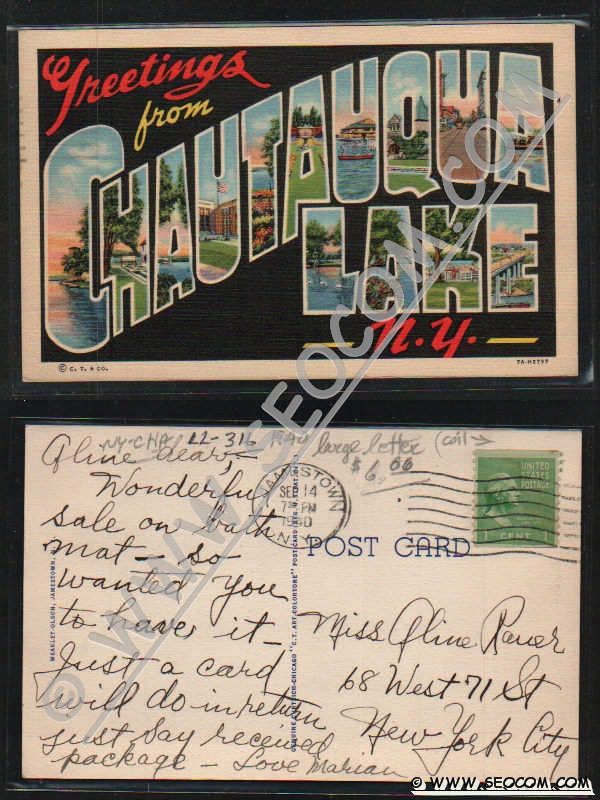 Greetings
from
CHAUTAUQUA
LAKE
N.Y.
© C. T. & CO.
7A-H2793
NY-CHA 22-316 1940 large letter (coil →
$6.00
Aline dear,
Wonderful
sale on bath
mat - so
wanted you
to have it -
Just a card
will do in return
just say received
package - Love Marian
JAMESTOWN
SEP 14
7 PM
1940
N.Y.
POST CARD
UNITED
STATES
POSTAGE
1 CENT 1
Miss Aline Rauer
68 West 71 St
New York City
© WWW.SEOCOM.COM
© WWW.SEOCOM.COM